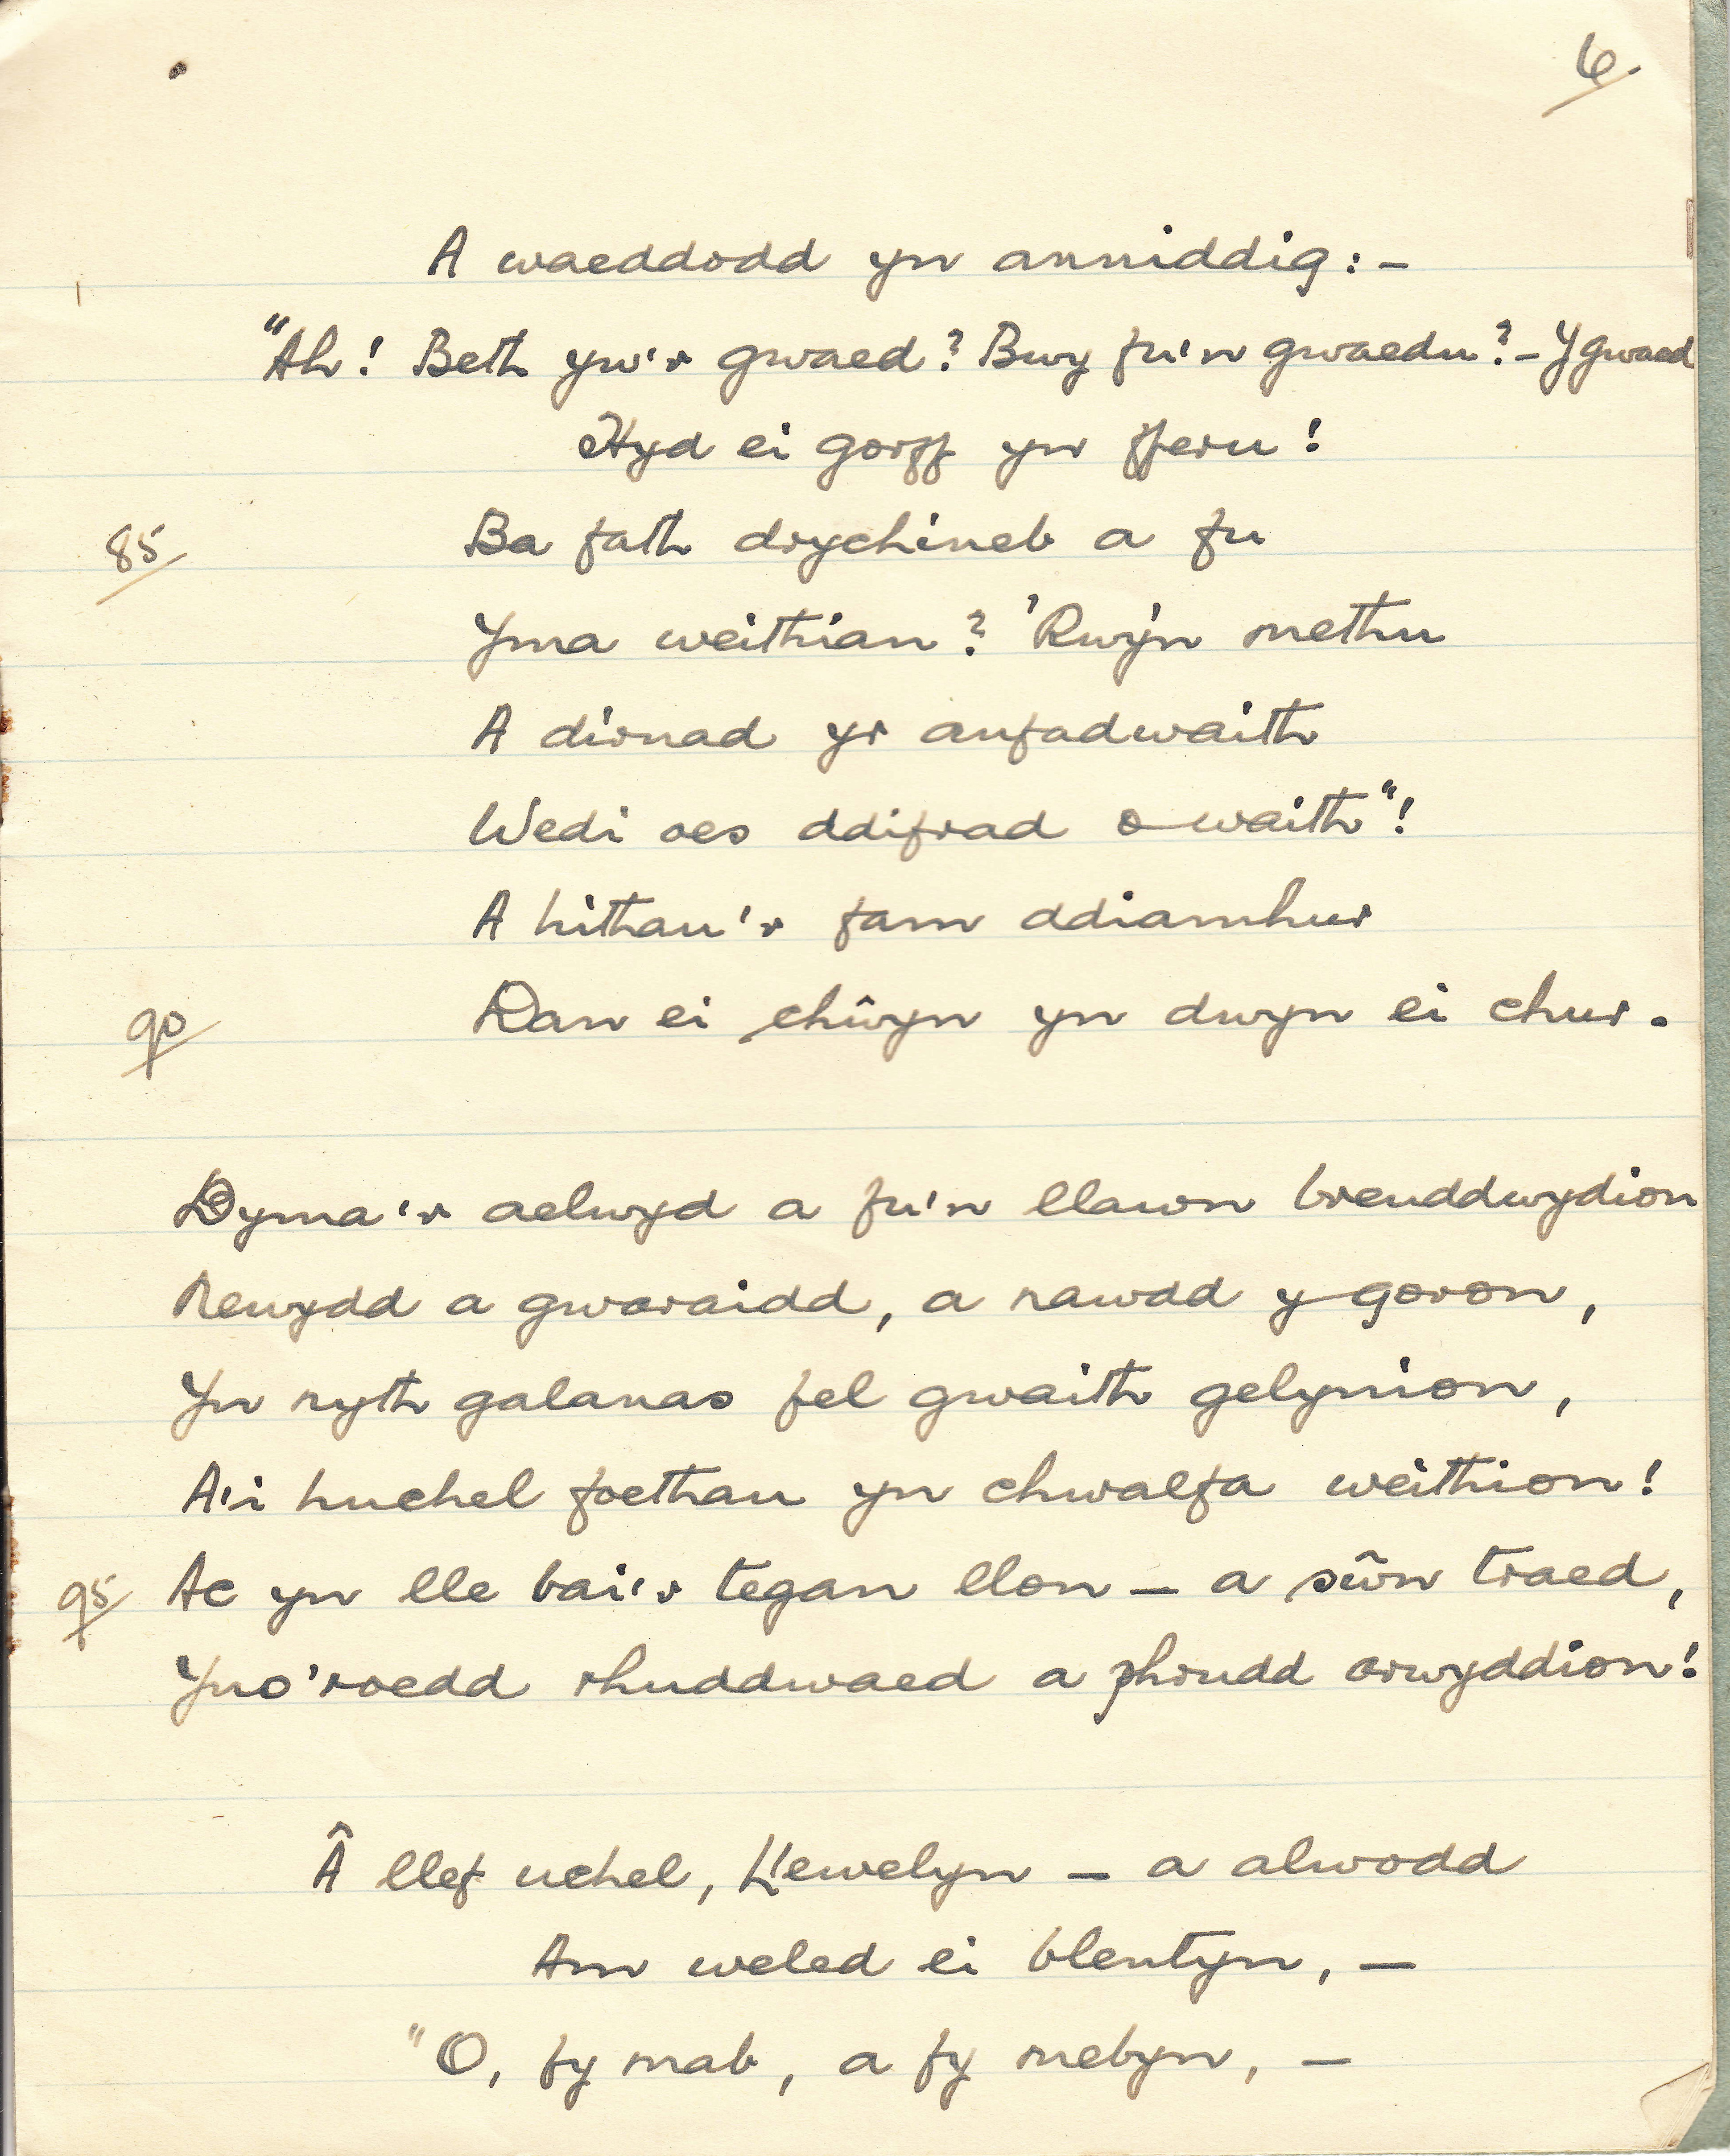 6.
A waeddodd yn anniddig:-
"Ah! Beth yw'r gwaed? Bwy fu'n gwaedu?- Y gwaed
Hyd ei gorff yn fferu!
85 Ba fath drychineb a fu
Yma weithian? 'Rwy'n methu
A dirnad yr anfadwaith
Wedi oes ddifrad o waith"!
A hithau'r fam ddiamhur
90 Dan ei chŵyn yn dwyn ei chur.
Dyma'r aelwyd a fu'n llawn breuddwydion
Newydd a gwaraidd, a nawdd y goron,
Yn nyth galanas fel gwaith gelynion,
A'i huchel foethau yn chwalfa weithion!
95 Ac yn lle bai'r tegan llon - a sŵn traed,
Yno 'roedd rhuddwaed a phrudd arwyddion!
Â llef uchel, Llewelyn - a alwodd
Am weled ei blentyn, -
"O, fy mab, a fy mebyn, -